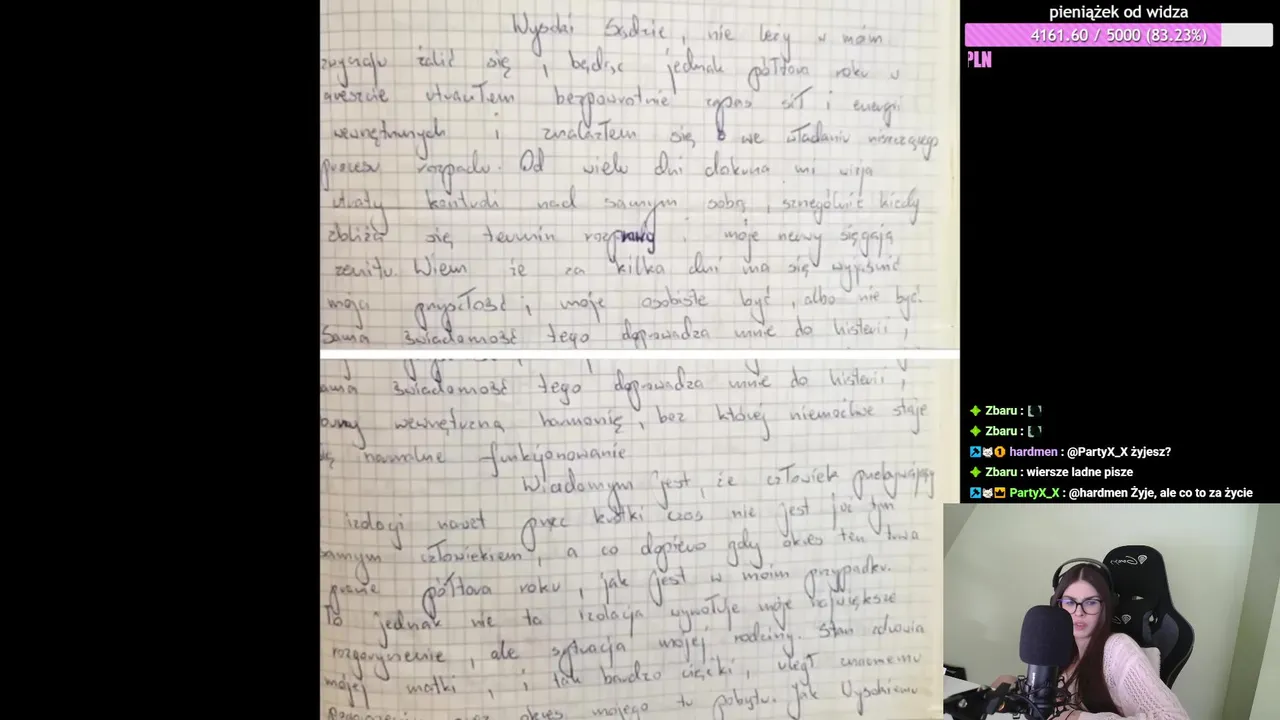 Wysoki Sądzie, nie leży w mym
zwyczaju żalić się, będąc jednak półtora roku w
areszcie utraciłem bezpowrotnie zapas sił i energii
wewnętrznych i znalazłem się we władaniu niszczącego
procesu rozpadu. Od wielu dni dokucza mi wizja
utraty kontroli nad samym sobą, szczególnie kiedy
zbliża się termin rozprawy i moje nerwy sięgają
zenitu. Wiem że za kilka dni ma się wyjaśnić
moja przyszłość, moje osobiste być, albo nie być.
Sama świadomość tego doprowadza mnie do histerii,
ama świadomość tego doprowadza mnie do histerii,
wewnętrzną harmonię, bez której niemożliwe staje
się normalne funkcjonowanie.
Wiadomym jest, że człowiek przebywający
izolacji nawet przez krótki czas nie jest już tym
samym człowiekiem, a co dopiero gdy okres ten trwa
prawie półtora roku, jak jest w moim przypadku.
To jednak nie ta izolacja wywołuje moje największe
rozgoryczenie, ale sytuacja mojej rodziny. Stan zdrowia
mojej matki, i tak bardzo ciężki, uległ znacznemu
okres mojego tu pobytu. Jak Wysokiemu
pieniążek od widza
4161.60 / 5000 (83.23%)
PLN
Zbaru :
Zbaru :
hardmen : @PartyX_X żyjesz?
Zbaru : wiersze ladne pisze
PartyX_X : @hardmen Żyje, ale co to za życie